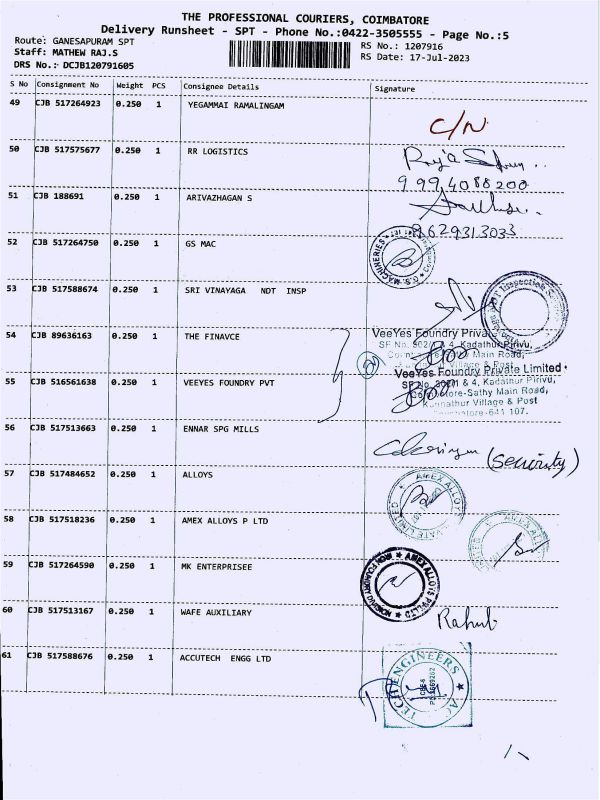 THE PROFESSIONAL COURIERS, COIMBATORE
Delivery Runsheet - SPT - Phone No.:0422-3505555 - Page No.:5
Route: GANESAPURAM SPT
RS No.: 1207916
Staff: MATHEW RAJ.S
RS Date: 17-Jul-2023
DRS No.: DCJB120791605
S No Consignment No Weight PCS Consignee Details Signature
49 CJB 517264923 0.250 1 YEGAMMAI RAMALINGAM
C/N
50 CJB 517575677 0.250 1 RR LOGISTICS
9994088200
51 CJB 188691 0.250 1 ARIVAZHAGAN S
9629313033
52 CJB 517264750 0.250 1 GS MAC
G.S. MACHINERIES
53 CJB 517588674 0.250 1 SRI VINAYAGA NDT INSP
Inspection
54 CJB 89636163 0.250 1 THE FINAVCE
VeeYes Foundry Private
SF No. 302/1 & 4, Kadathur Pirivu,
Main Road,
Village & Post
55 CJB 516561638 0.250 1 VEEYES FOUNDRY PVT
VeeYes Foundry Private Limited
SF No. 302/1 & 4, Kadathur Pirivu,
Coimbatore-Sathy Main Road,
Kunnathur Village & Post
Coimbatore-641 107.
56 CJB 517513663 0.250 1 ENNAR SPG MILLS
(security)
57 CJB 517484652 0.250 1 ALLOYS
AMEX ALLOYS PRIVATE LIMITED
58 CJB 517518236 0.250 1 AMEX ALLOYS P LTD
AMEX ALLOYS
59 CJB 517264590 0.250 1 MK ENTERPRISEE
AMEX ALLOYS P LTD
IRON FOUNDRY
60 CJB 517513167 0.250 1 WAFE AUXILIARY
Rahul
61 CJB 517588676 0.250 1 ACCUTECH ENGG LTD
ENGINEERS